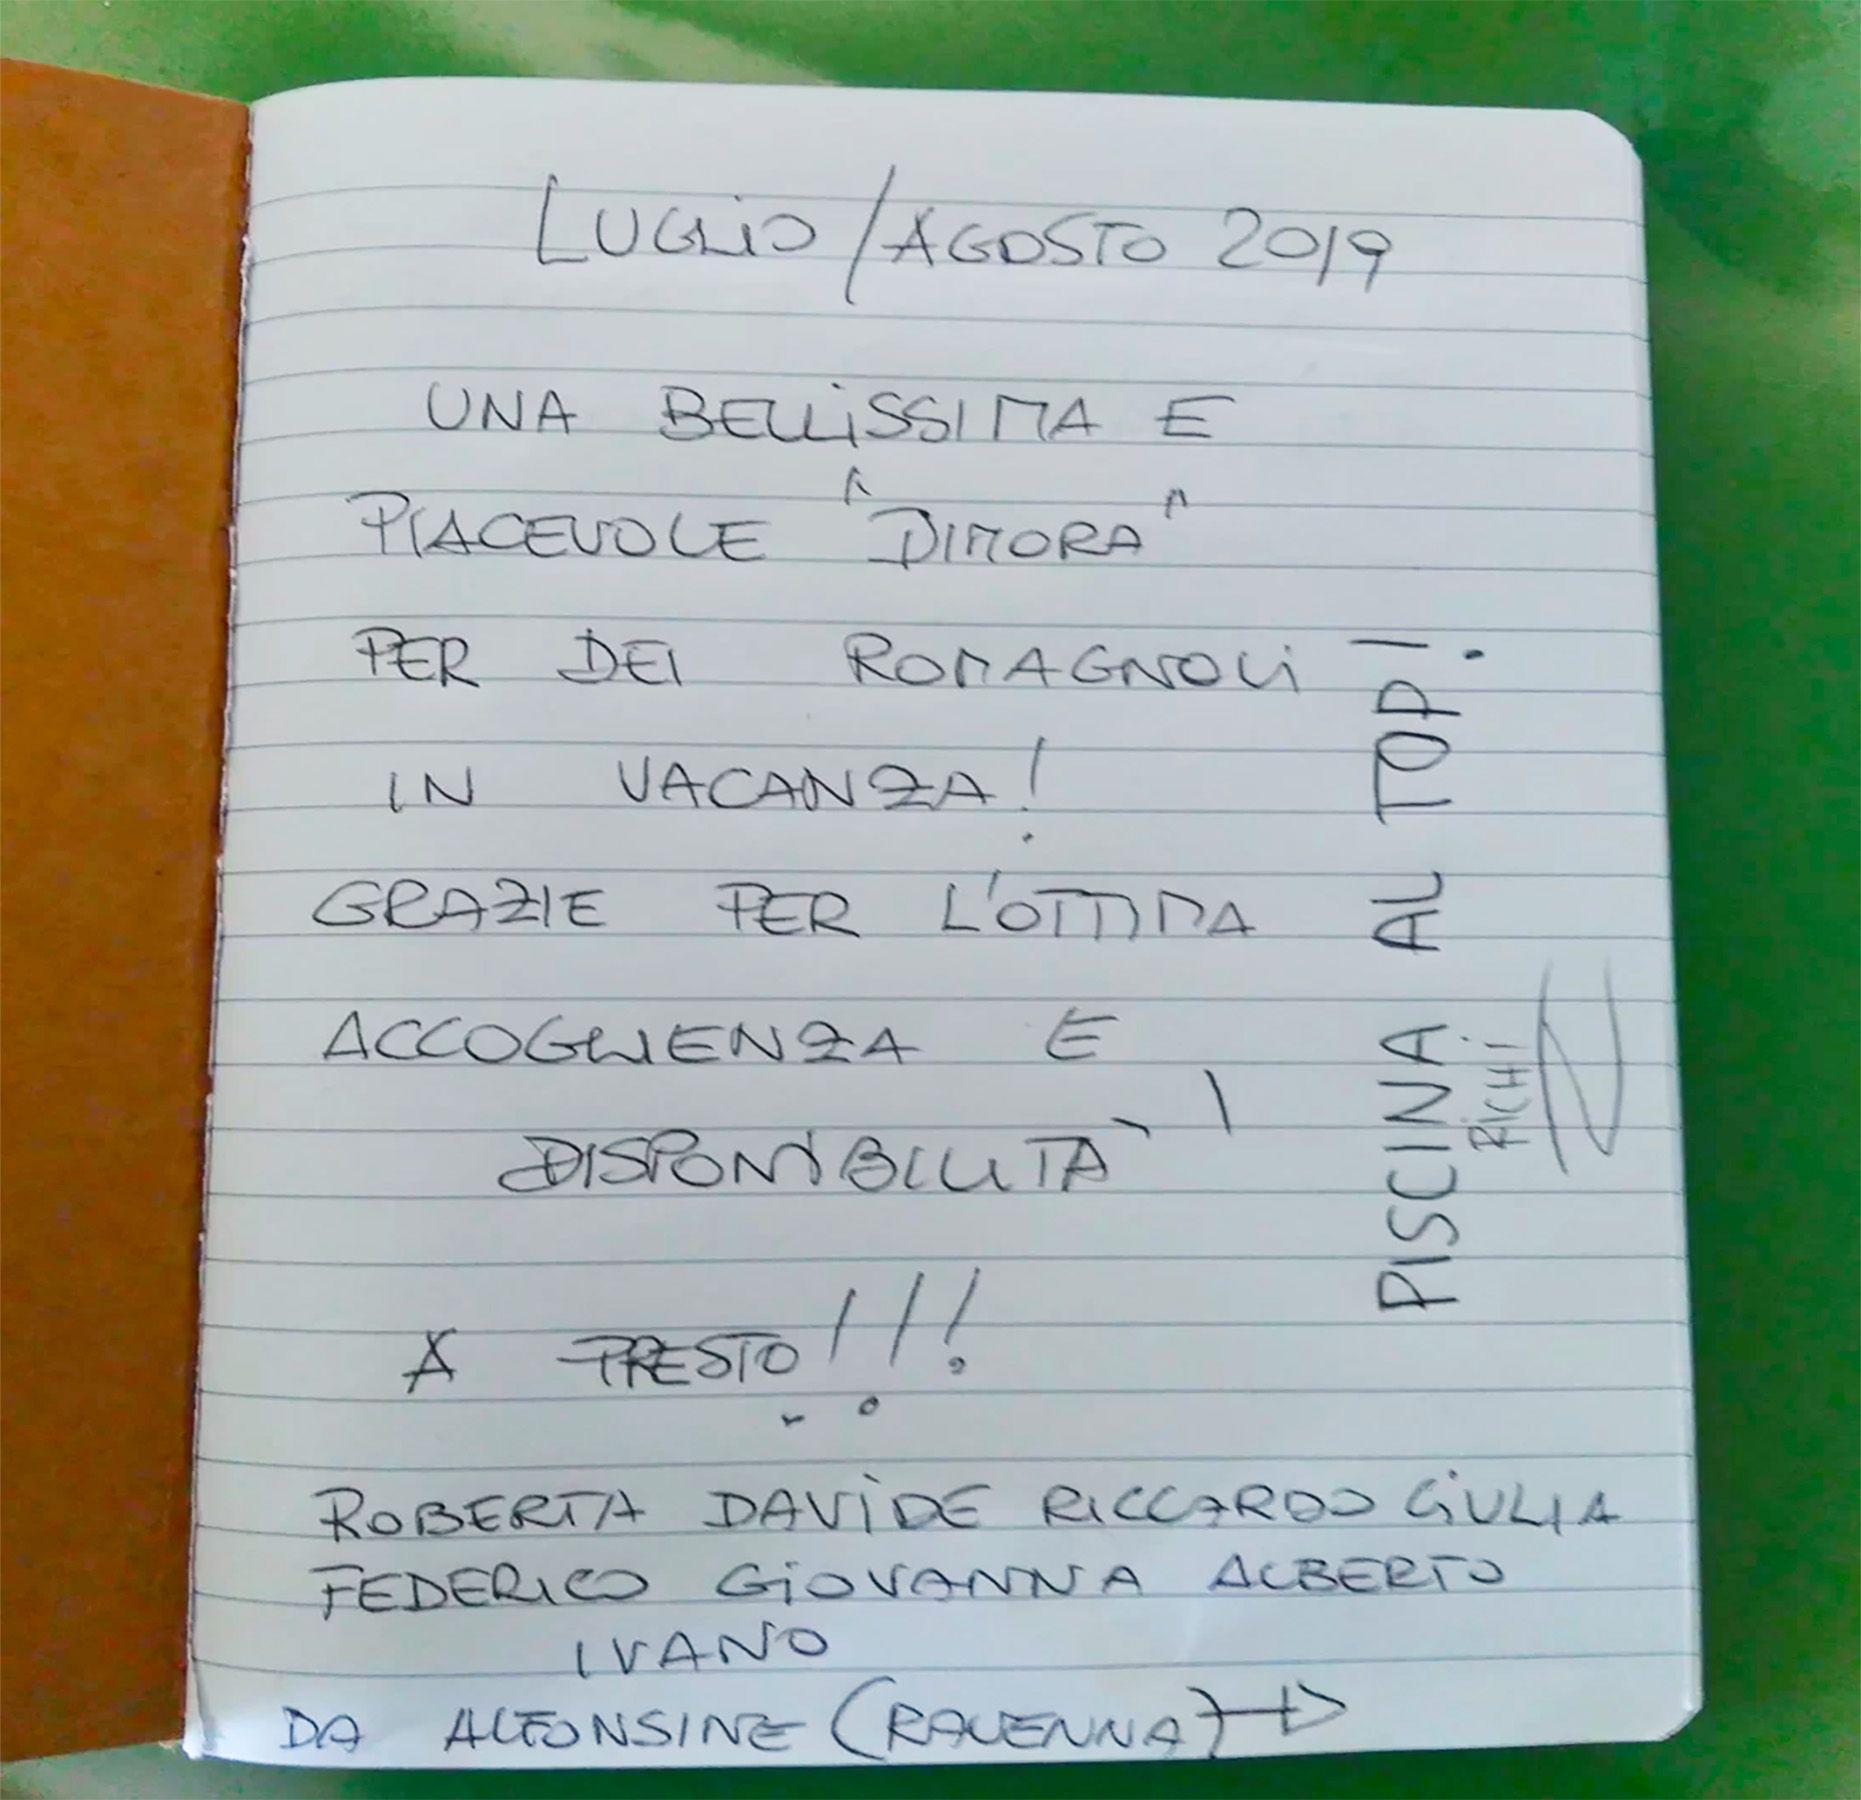 LUGLIO/AGOSTO 2019
UNA BELLISSIMA E
PIACEVOLE "DIMORA"
PER DEI ROMAGNOLI
IN VACANZA!
GRAZIE PER L'OTTIMA
ACCOGLIENZA E
DISPONIBILITÀ
A PRESTO!!!
ROBERTA DAVIDE RICCARDO GIULIA
FEDERICO GIOVANNA ALBERTO
IVANO
DA ALFONSINE (RAVENNA)
PISCINA AL TOP!
RICHI